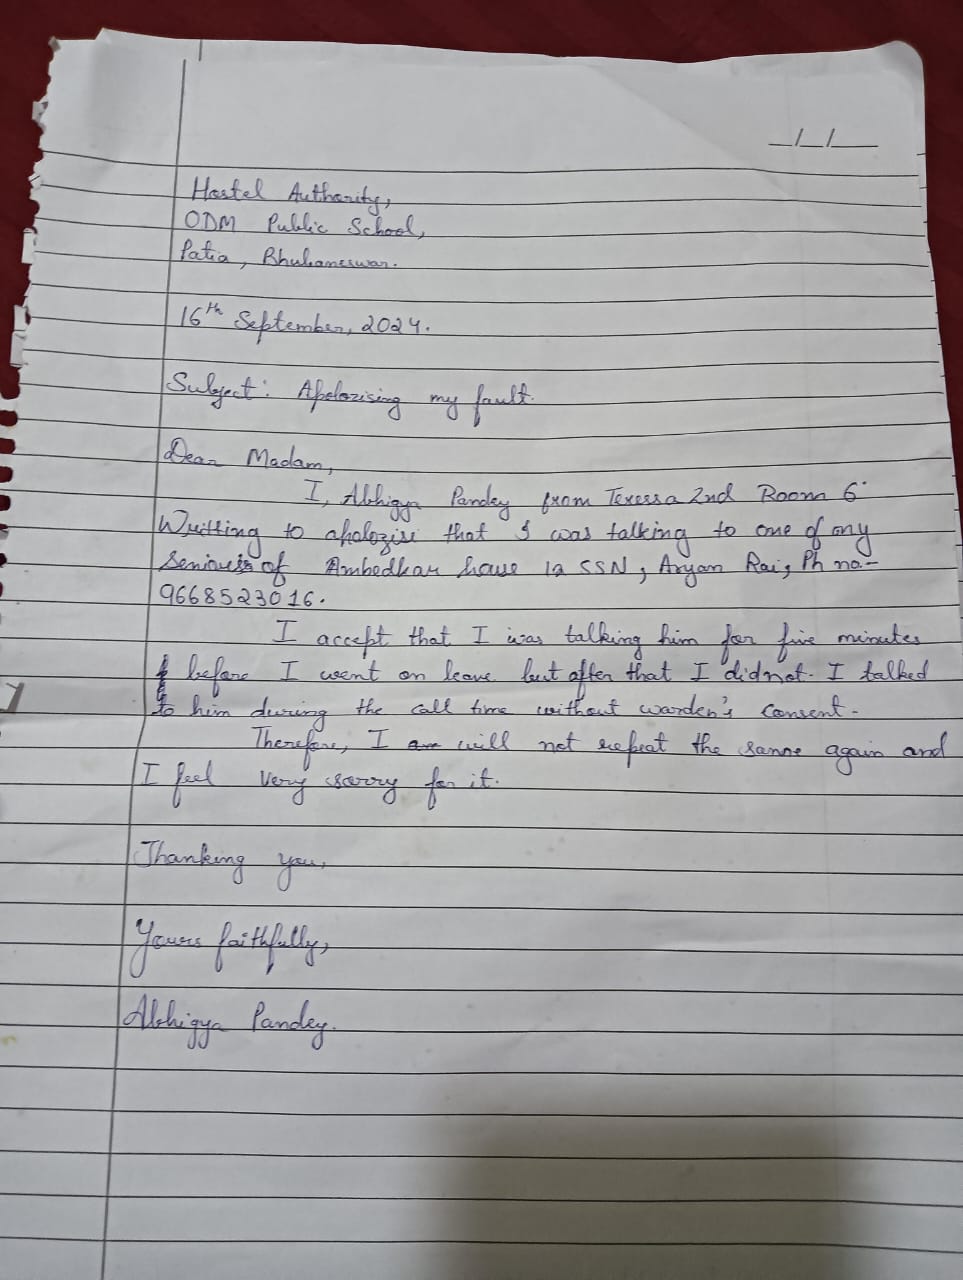 Hostel Authority,
ODM Public School,
Patia, Bhubaneswar.
16th September, 2024.
Subject: Apologising my fault.
Dear Madam,
I, Abhigya Pandey from Teressa 2nd Room 6
Writting to apologise that I was talking to one of my
seniors of Ambedkar house 12 SSN, Aryan Rai, Ph no.-
9668523016.
I accept that I was talking him for five minutes
before I went on leave but after that I did not. I talked
to him during the call time without warden's consent.
Therefore, I will not repeat the same again and
I feel very sorry for it.
Thanking you,
Yours faithfully,
Abhigya Pandey.